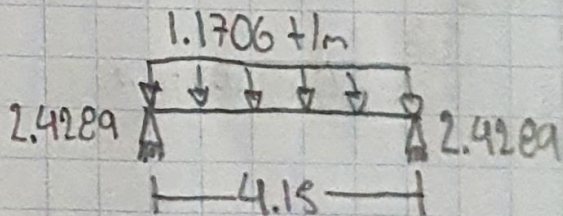 1.1706 t/m
2.4289 2.4289
4.15